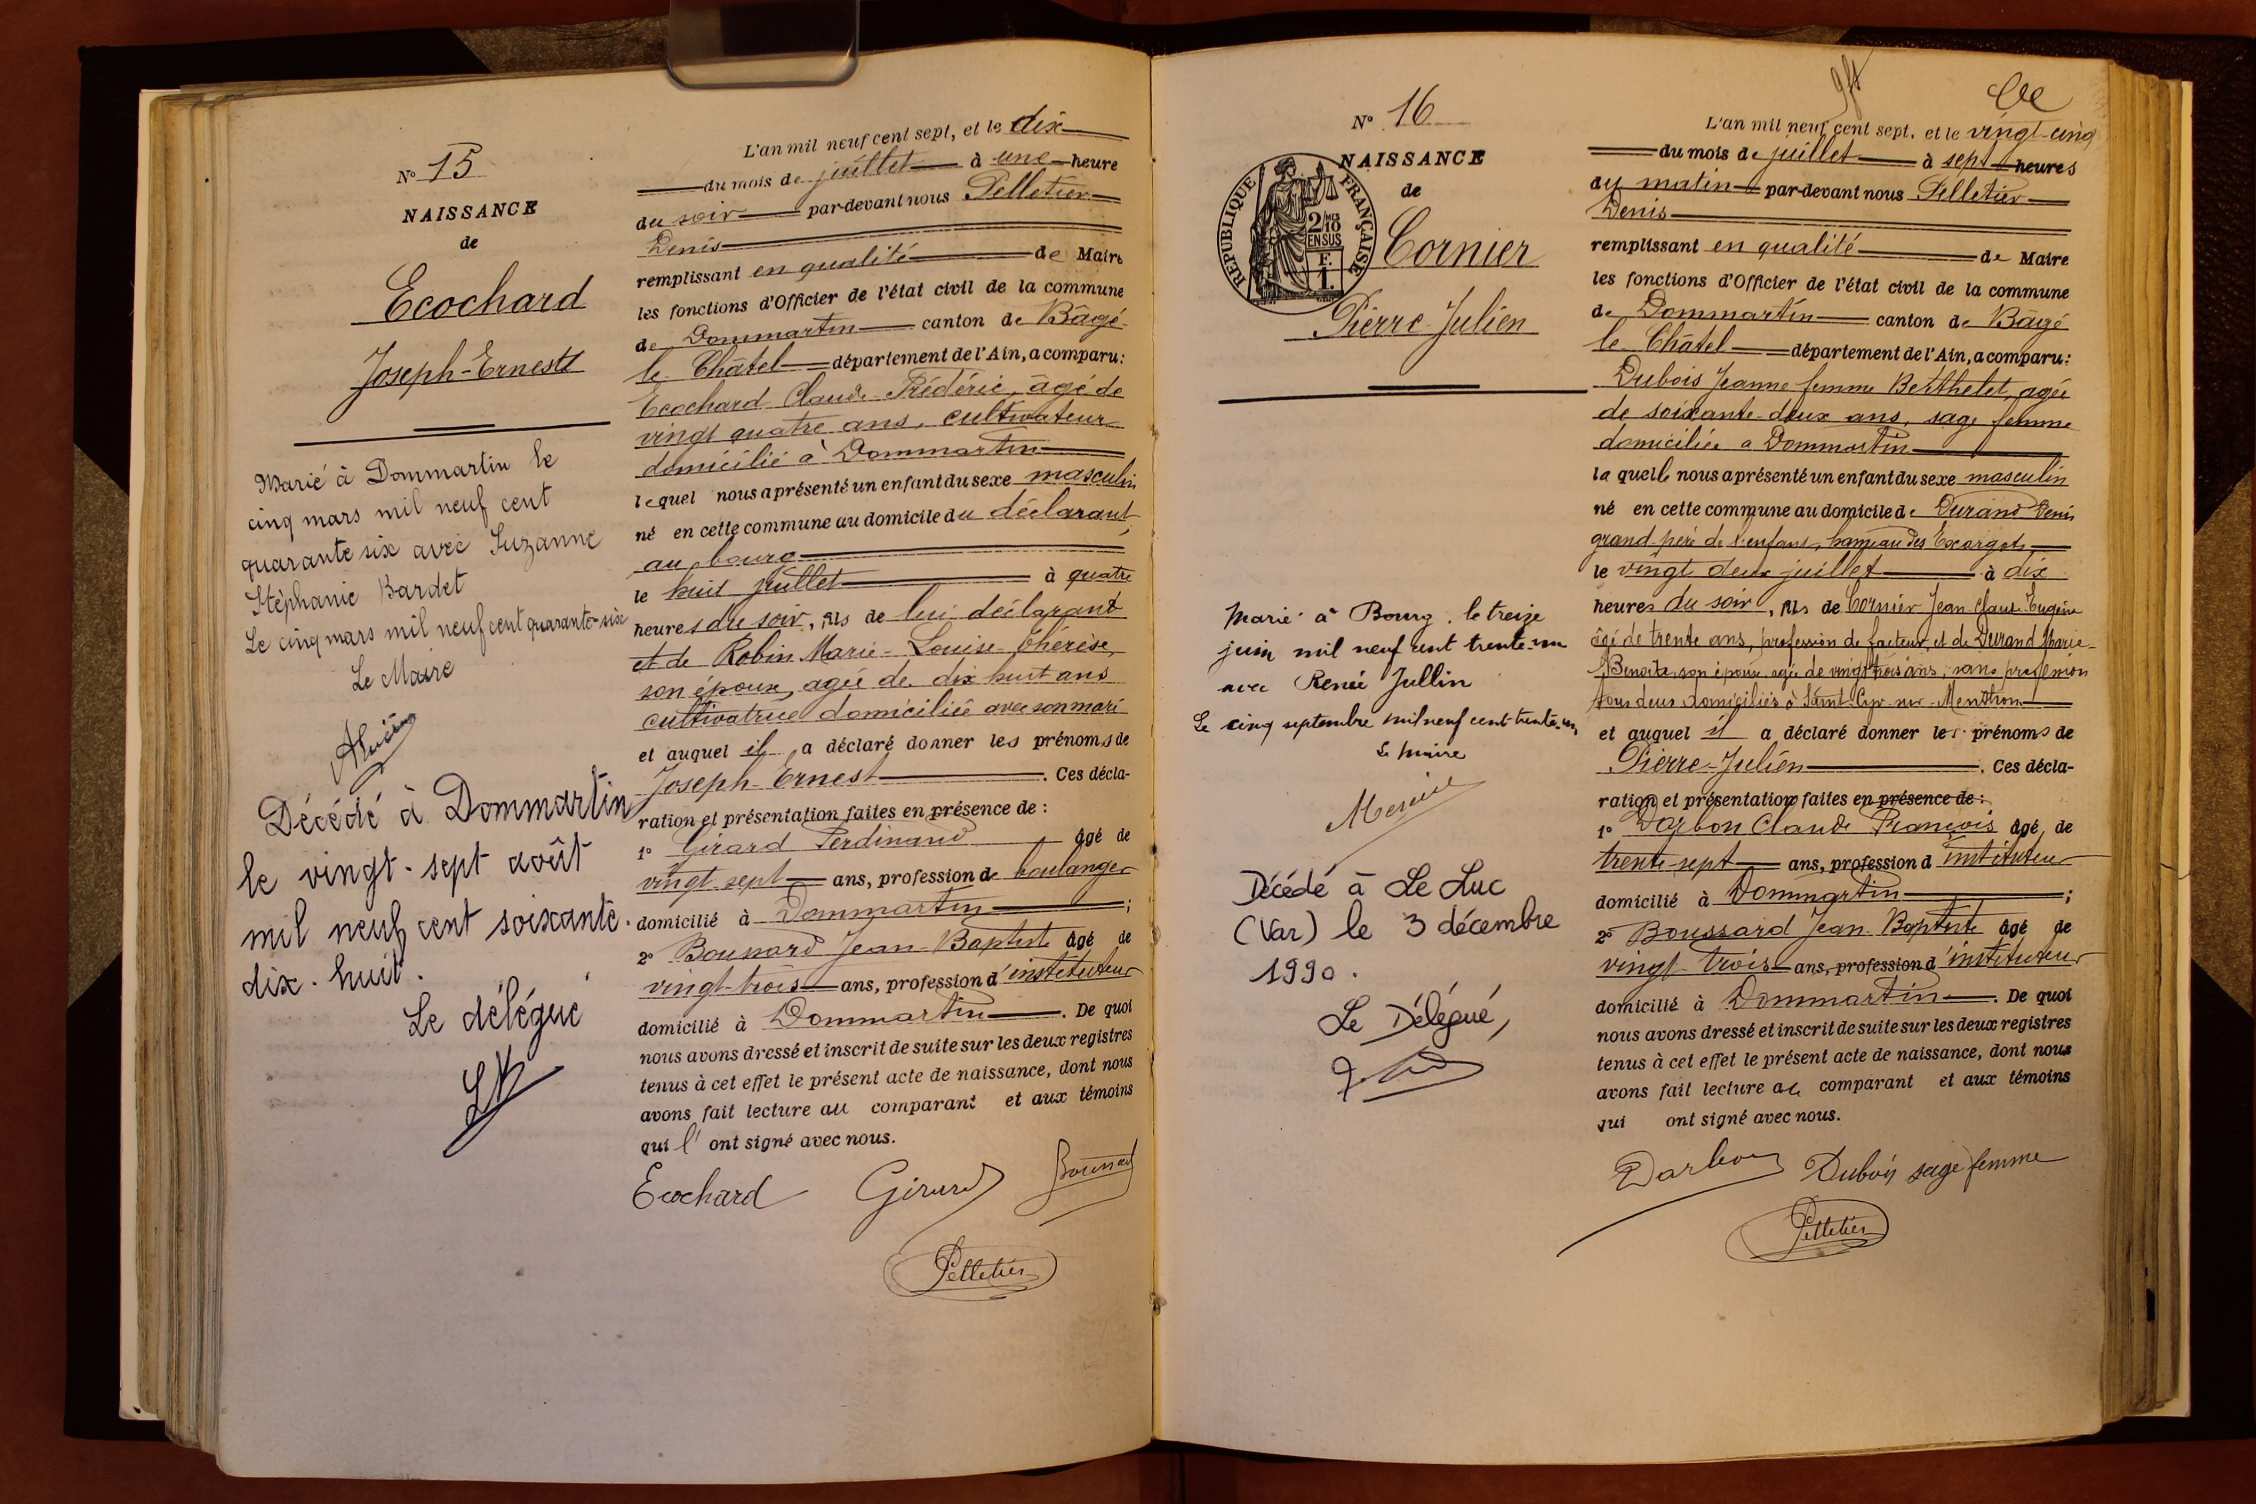 N° 15
NAISSANCE
de
Ecochard
Joseph-Ernest
Marié à Dommartin le
cinq mars mil neuf cent
quarante six avec Suzanne
Stéphanie Bardet
Le cinq mars mil neuf cent quarante-six
Le Maire
Décédé à Dommartin
le vingt-sept août
mil neuf cent soixante-
dix-huit.
Le délégué
L'an mil neuf cent sept, et le dix
du mois de juillet à une heure
du soir par-devant nous Pelletier
Denis
remplissant en qualité de Maire
les fonctions d'Officier de l'état civil de la commune
de Dommartin canton de Bâgé-
le Châtel département de l'Ain, a comparu:
Ecochard Claude Frédéric, âgé de
vingt quatre ans, cultivateur
domicilié à Dommartin
lequel nous a présenté un enfant du sexe masculin
né en cette commune au domicile du déclarant,
au bourg
le huit juillet à quatre
heures du soir, fils de lui déclarant
et de Robin Marie-Louise-Thérèse,
son épouse, agée de dix huit ans
cultivatrice domiciliée avec son mari
et auquel il a déclaré donner les prénoms de
Joseph Ernest . Ces décla-
ration et présentation faites en présence de :
1° Girard Ferdinand âgé de
vingt-sept ans, profession de boulanger
domicilié à Dommartin ;
2° Boussard Jean-Baptiste âgé de
vingt-trois ans, profession d'instituteur
domicilié à Dommartin . De quoi
nous avons dressé et inscrit de suite sur les deux registres
tenus à cet effet le présent acte de naissance, dont nous
avons fait lecture au comparant et aux témoins
qui l' ont signé avec nous.
Ecochard Girard Boussard
Pelletier
N° 16
NAISSANCE
de
REPUBLIQUE FRANÇAISE
2/10 EN SUS
F. 1.
Cornier
Pierre-Julien
Marié à Bourg, le treize
juin mil neuf cent trente-un
avec Renée Jullin
Le cinq septembre mil neuf cent trente-un,
Le Maire
Décédé à Le Luc
(Var) le 3 décembre
1990.
Le Délégué,
L'an mil neuf cent sept, et le vingt-cinq
du mois de juillet à sept heures
du matin par-devant nous Pelletier
Denis
remplissant en qualité de Maire
les fonctions d'Officier de l'état civil de la commune
de Dommartin canton de Bâgé
le Châtel département de l'Ain, a comparu:
Dubois Jeanne femme Berthelet, agée
de soixante-deux ans, sage femme
domiciliée a Dommartin
la quelle nous a présenté un enfant du sexe masculin
né en cette commune au domicile de Durand Denis
grand-père de l'enfant, hameau des Escargots,
le vingt deux juillet à dix
heures du soir, fils de Cornier Jean Claude Eugène
âgé de trente ans, profession de facteur, et de Durand Marie-
Benoite son épouse agée de vingt trois ans, sans profession
tous deux domiciliés à Saint-Cyr-sur-Menthon
et auquel il a déclaré donner les prénoms de
Pierre-Julien . Ces décla-
ration et présentation faites en présence de :
1° Darbon Claude François âgé de
trente-sept ans, profession d'instituteur
domicilié à Dommartin ;
2° Boussard Jean-Baptiste âgé de
vingt-trois ans, profession d'instituteur
domicilié à Dommartin . De quoi
nous avons dressé et inscrit de suite sur les deux registres
tenus à cet effet le présent acte de naissance, dont nous
avons fait lecture au comparant et aux témoins
qui ont signé avec nous.
Darbon Dubois sage femme
Pelletier